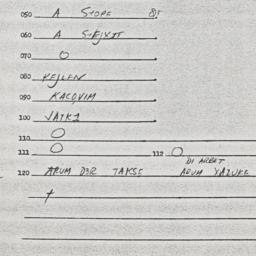 050 A STOPE 85
060 A
070 O
080 KEJLEN
090 KACOVIM
100 VATKI
110 O
111 O 112 O
DI ARBET
120 ARUM DER TAKSE ARUM